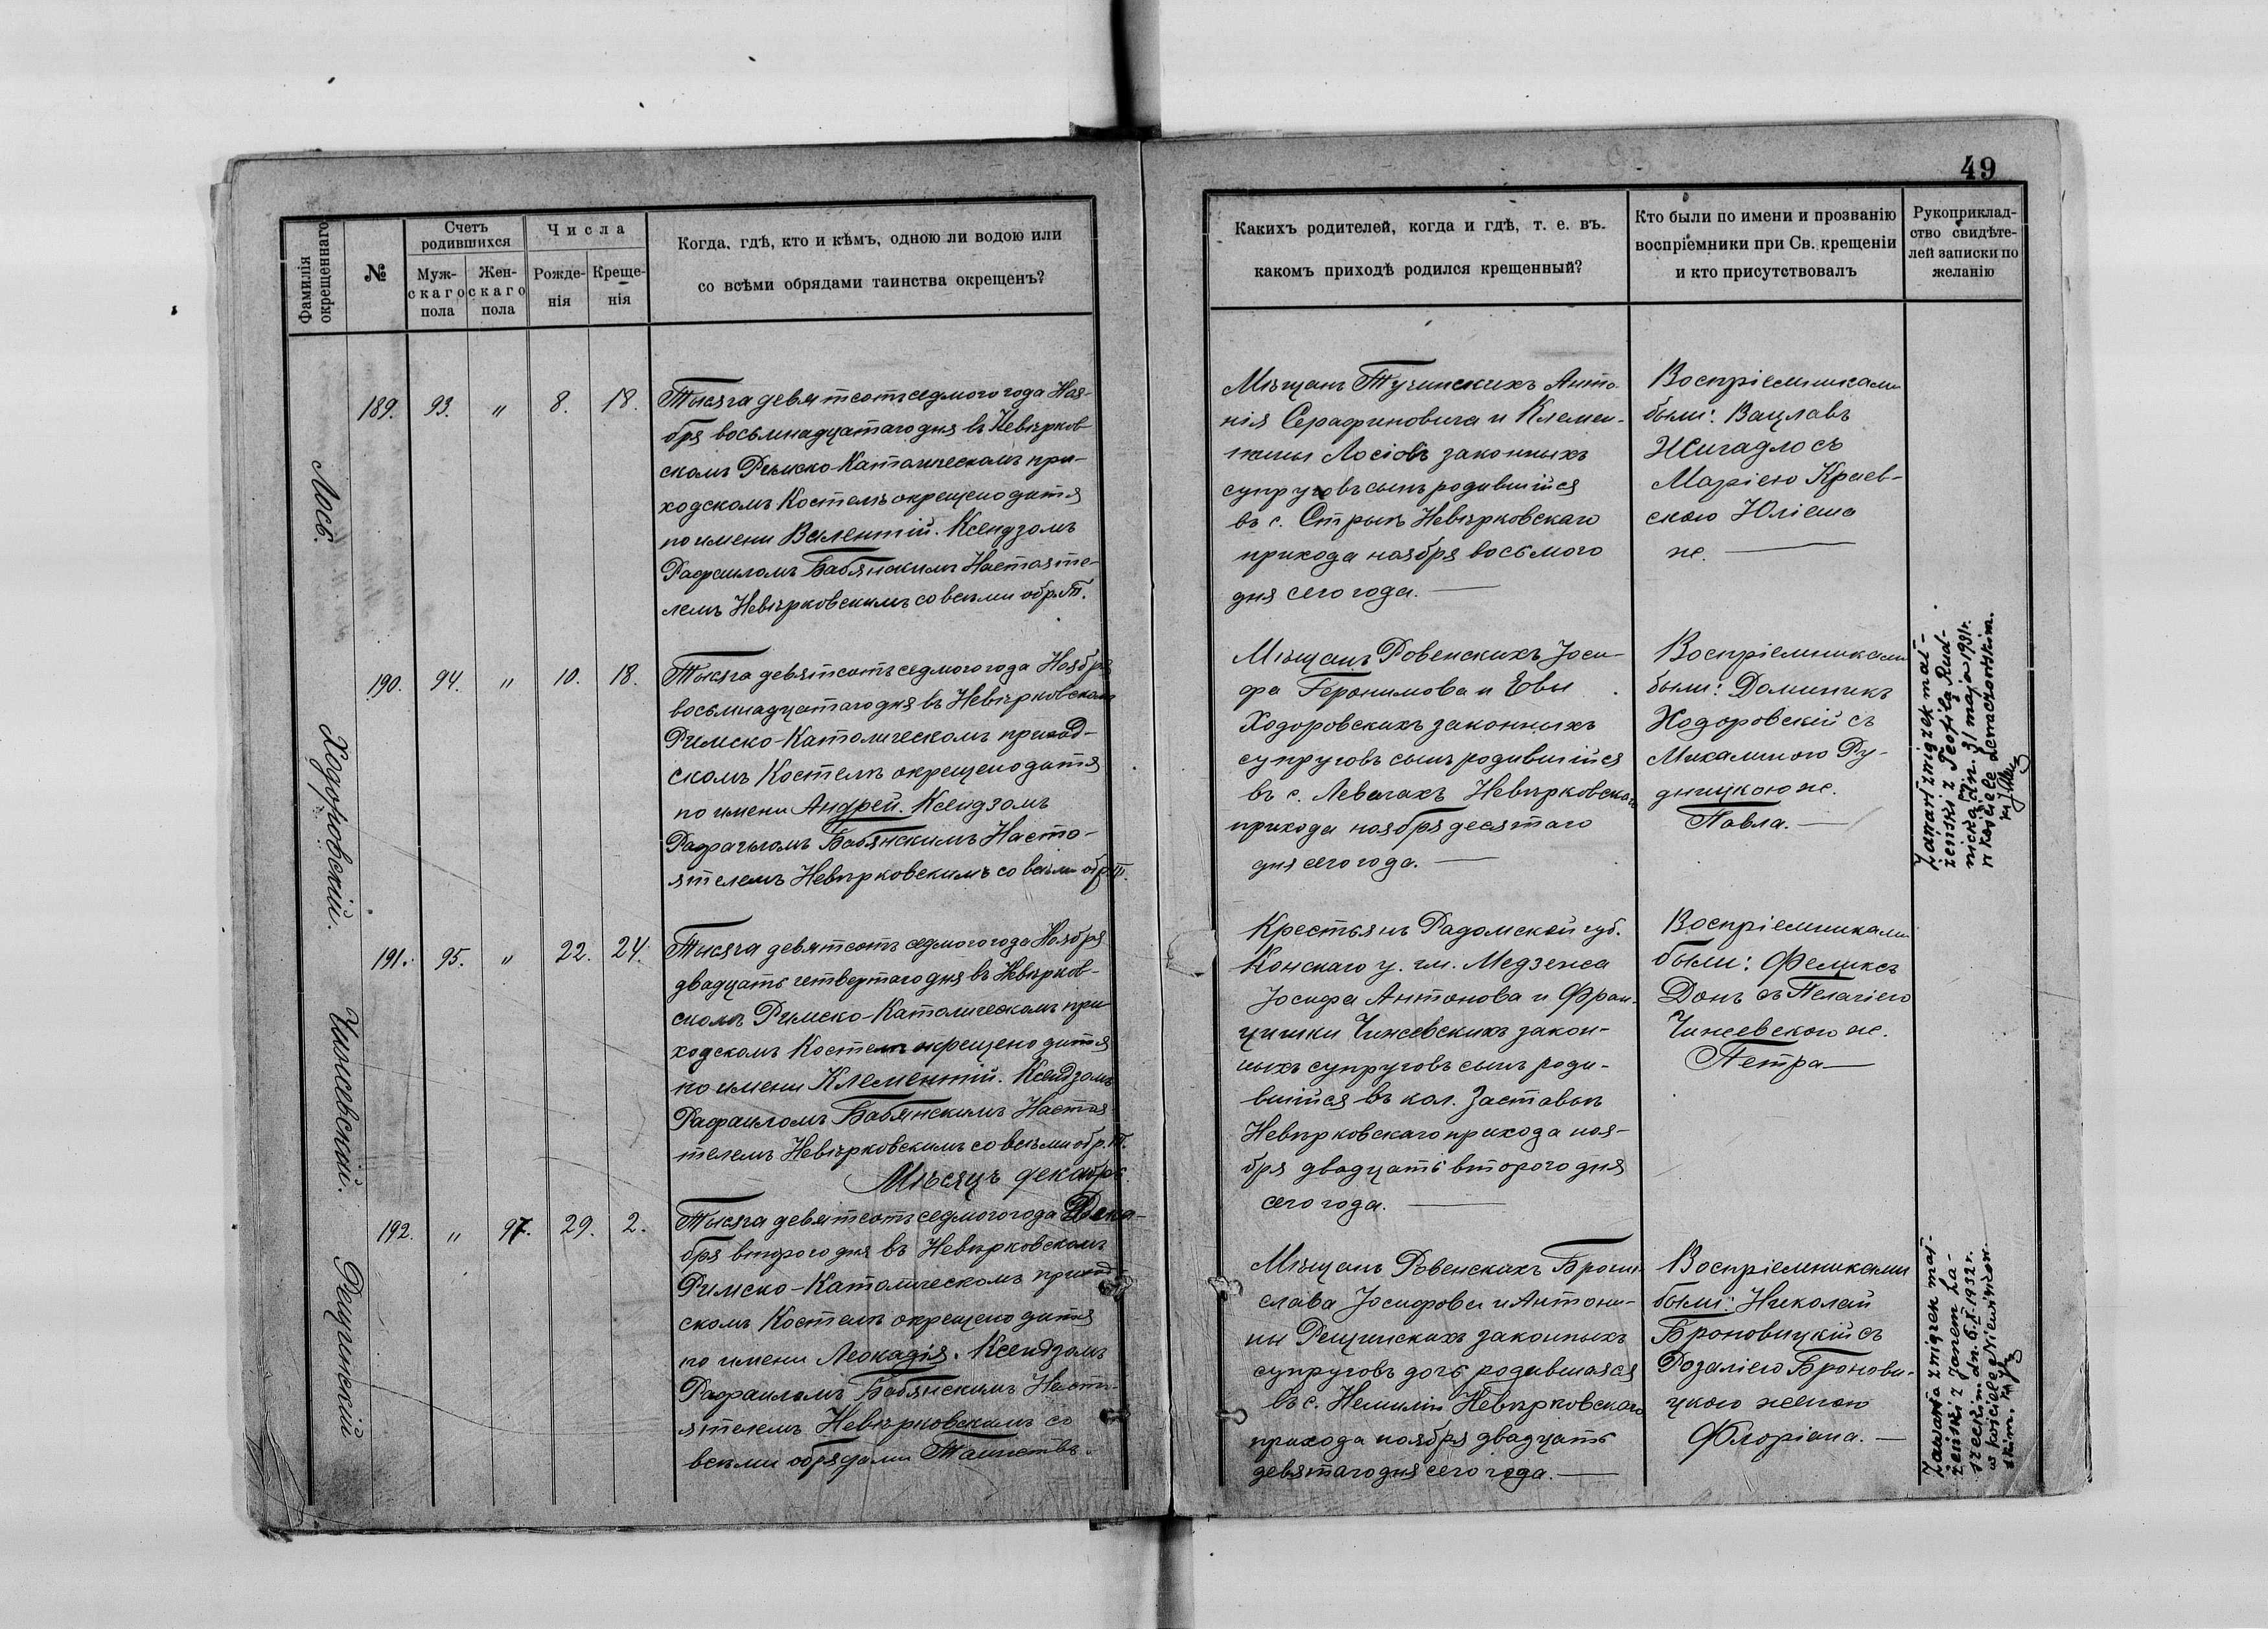 49
Фамилія
окрещеннаго
№
Счетъ
родившихся
Муж-
скаго
пола
Жен-
скаго
пола
Числа
Рожде-
нія
Креще-
нія
Когда, гдѣ, кто и кѣмъ, одною ли водою или
со всѣми обрядами таинства окрещенъ?
Какихъ родителей, когда и гдѣ, т. е. въ.
какомъ приходѣ родился крещенный?
Кто были по имени и прозванію
воспріемники при Св. крещеніи
и кто присутствовалъ
Рукоприклад-
ство свидѣте-
лей записки по
желанію
Лось.
189. 93. " 8. 18.
Тысяча девятсотъ седмого года Ноя-
бря восьмнадцатаго дня въ Невѣрков-
скомъ Римско-Католическомъ при-
ходскомъ Костелѣ окрещено дитя
по имени Валентій. Ксендзомъ
Рафаиломъ Бабянскимъ Настояте-
лемъ Невѣрковскимъ со всѣми обр. Т.
Мѣщанъ Тучинскихъ Анто-
нія Серафиновича и Клемен-
Лосіовъ законныхъ
супруговъ сынъ родившійся
въ с. Невѣрковскаго
прихода ноября восьмого
дня сего года.
Воспріемниками
были: Вацлавъ
Жигадло съ
Маріею Краев-
скою Юліана
ж.
Ходоровский.
190. 94. " 10. 18.
Тысяча девятсотъ седмого года Ноября
восьмнадцатаго дня въ Невѣрковскомъ
Римско-Католическомъ приход-
скомъ Костелѣ окрещено дитя
по имени Андрей. Ксендзомъ
Рафаиломъ Бабянскимъ Насто-
ятелемъ Невѣрковскимъ со всѣми обр. Т.
Мѣщанъ Ровенскихъ Іоси-
фа Геронимова и Евы
Ходоровскихъ законныхъ
супруговъ сынъ родившійся
въ с. Левачахъ Невѣрковскаго
прихода ноября десятаго
дня сего года.
Воспріемниками
были: Доминикъ
Ходоровскій съ
Михалиною Ру-
дницкою ж.
Павла.
Zawarł związek mał-
żeński z Teofilą Rud-
nicką dn. 31 maja 1931 r.
w kościele Lewaczowskim.
Чижевский.
191. 95. " 22. 24.
Тысяча девятсотъ седмого года Ноября
двадцать четвертаго дня въ Невѣрков-
скомъ Римско-Католическомъ при-
ходскомъ Костелѣ окрещено дитя
по имени Клементій. Ксендзомъ
Рафаиломъ Бабянскимъ Настоя-
телемъ Невѣрковскимъ со всѣми обр. Т.
Крестьянъ Радомской губ.
Конскаго у. гм. Медзежа
Іосифа Антонова и Фран-
цишки Чижевскихъ закон-
ныхъ супруговъ сынъ роди-
вшійся въ кол. Заставье
Невѣрковскаго прихода ноя-
бря двадцать второго дня
сего года.
Воспріемниками
были: Феликсъ
Донъ съ Пелагіею
Чижевскою ж.
Петра
Мѣсяцъ декабрь.
Рещинскій
192. " 97. 29. 2.
Тысяча девятсотъ седмого года Дека-
бря второго дня въ Невѣрковскомъ
Римско-Католическомъ приход-
скомъ Костелѣ окрещено дитя
по имени Леокадія. Ксендзомъ
Рафаиломъ Бабянскимъ Насто-
ятелемъ Невѣрковскимъ со
всѣми обрядами Таинствъ.
Мѣщанъ Ровенскихъ Брони-
слава Іосифова и Антони-
ны Рещинскихъ законныхъ
супруговъ дочь родившаяся
въ с. Немиліи Невѣрковскаго
прихода ноября двадцать
девятаго дня сего года.
Воспріемниками
были: Николай
Броновицкій съ
Розаліею Бронови-
цкою женою
Флоріана.
Zawarła związek mał-
żeński z Janem
dn. 6.X.1932 r.
w kościele
skim.